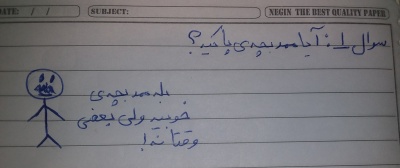 DATE: / /
SUBJECT:
NEGIN THE BEST QUALITY PAPER
سوال 1: آیا ممد بچه ی پاکیه؟
بله ممد بچه ی
خوبیه ولی بعضی
وقتا نه!